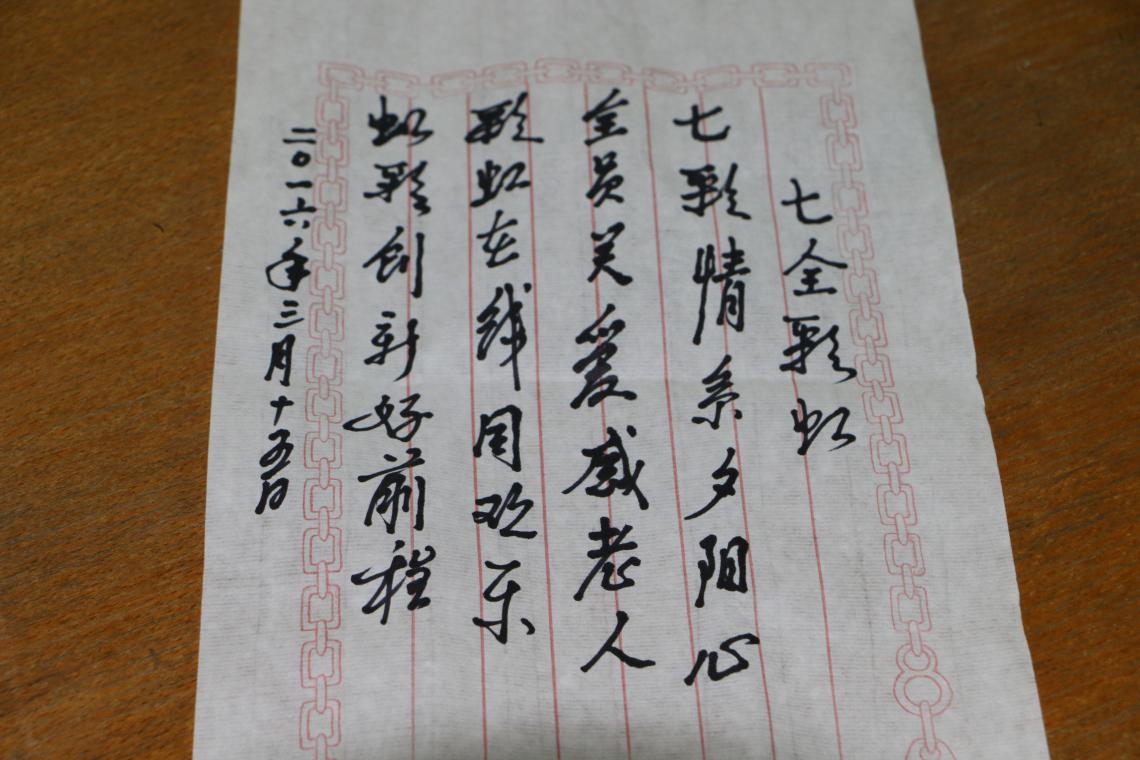 七全彩虹
七彩情系夕阳心
全员关爱感老人
彩虹在线同欢乐
虹彩创新好前程
二〇一六年三月十五日